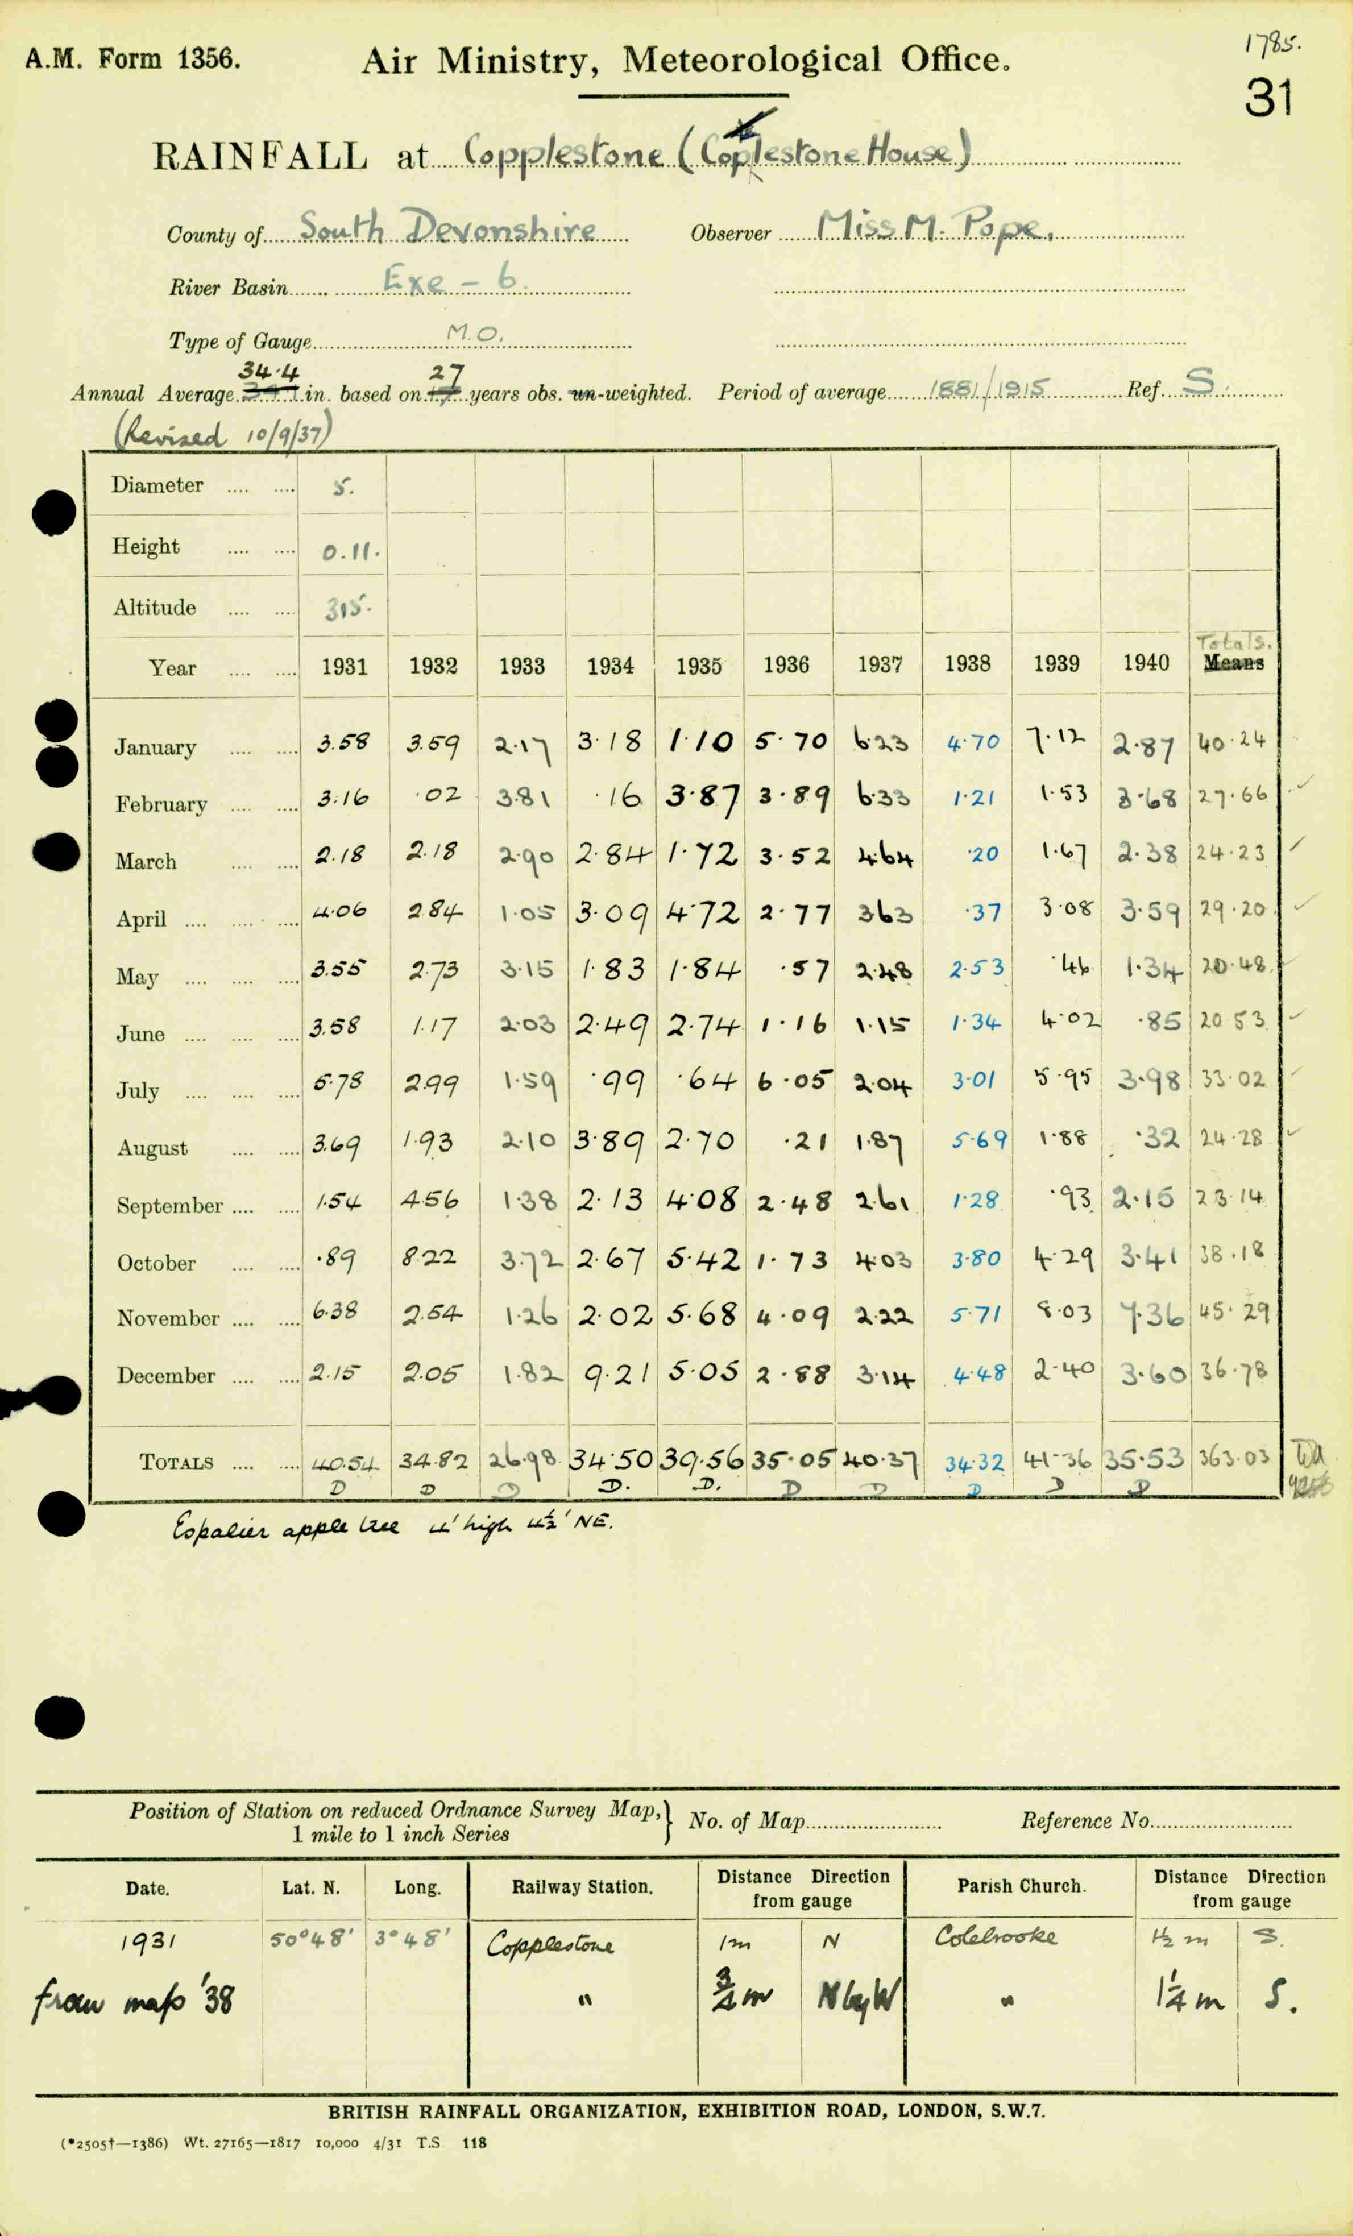 1785.
A.M. Form 1356. Air Ministry, Meteorological Office.
31
RAINFALL at Copplestone (Coplestone House)
County of South Devonshire Observer Miss M. Pope.
River Basin Exe - 6.
Type of Gauge M.O.
34.4 27
Annual Average in. based on years obs. un-weighted. Period of average 1881/1915 Ref. S.
(Revised 10/9/37)
Diameter .... .... 5.
Height .... .... 0.11.
Altitude .... .... 315.
Totals.
Year .... .... 1931 1932 1933 1934 1935 1936 1937 1938 1939 1940 Means
January .... .... 3.58 3.59 2.17 3.18 1.10 5.70 6.23 4.70 7.12 2.87 40.24
February .... .... 3.16 .02 3.81 .16 3.87 3.89 6.33 1.21 1.53 3.68 27.66
March .... .... 2.18 2.18 2.90 2.84 1.72 3.52 4.64 .20 1.67 2.38 24.23
April .... .... .... 4.06 2.84 1.05 3.09 4.72 2.77 3.63 .37 3.08 3.59 29.20
May .... .... .... 3.55 2.73 3.15 1.83 1.84 .57 2.48 2.53 .46 1.34 20.48
June .... .... .... 3.58 1.17 2.03 2.49 2.74 1.16 1.15 1.34 4.02 .85 20.53
July .... .... .... 5.78 2.99 1.59 .99 .64 6.05 2.04 3.01 5.95 3.98 33.02
August .... .... 3.69 1.93 2.10 3.89 2.70 .21 1.87 5.69 1.88 .32 24.28
September .... .... 1.54 4.56 1.38 2.13 4.08 2.48 2.61 1.28 .93 2.15 23.14
October .... .... .89 8.22 3.72 2.67 5.42 1.73 4.03 3.80 4.29 3.41 38.18
November .... .... 6.38 2.54 1.26 2.02 5.68 4.09 2.22 5.71 8.03 7.36 45.29
December .... .... 2.15 2.05 1.82 9.21 5.05 2.88 3.14 4.48 2.40 3.60 36.78
TOTALS .... .... 40.54 34.82 26.98 34.50 39.56 35.05 40.37 34.32 41.36 35.53 363.03
D D D D. D. D D D D D
Espalier apple tree 4' high 4½' NE.
Position of Station on reduced Ordnance Survey Map,} No. of Map Reference No.
1 mile to 1 inch Series
Date. Lat. N. Long. Railway Station. Distance Direction from gauge Parish Church. Distance Direction from gauge
1931 50°48' 3°48' Copplestone 1m N Colebrooke 1½ m S.
from map '38 " ¾ m N by W " 1¼ m S.
BRITISH RAINFALL ORGANIZATION, EXHIBITION ROAD, LONDON, S.W.7.
(*2505†—1386) Wt. 27165—1817 10,000 4/31 T.S 118